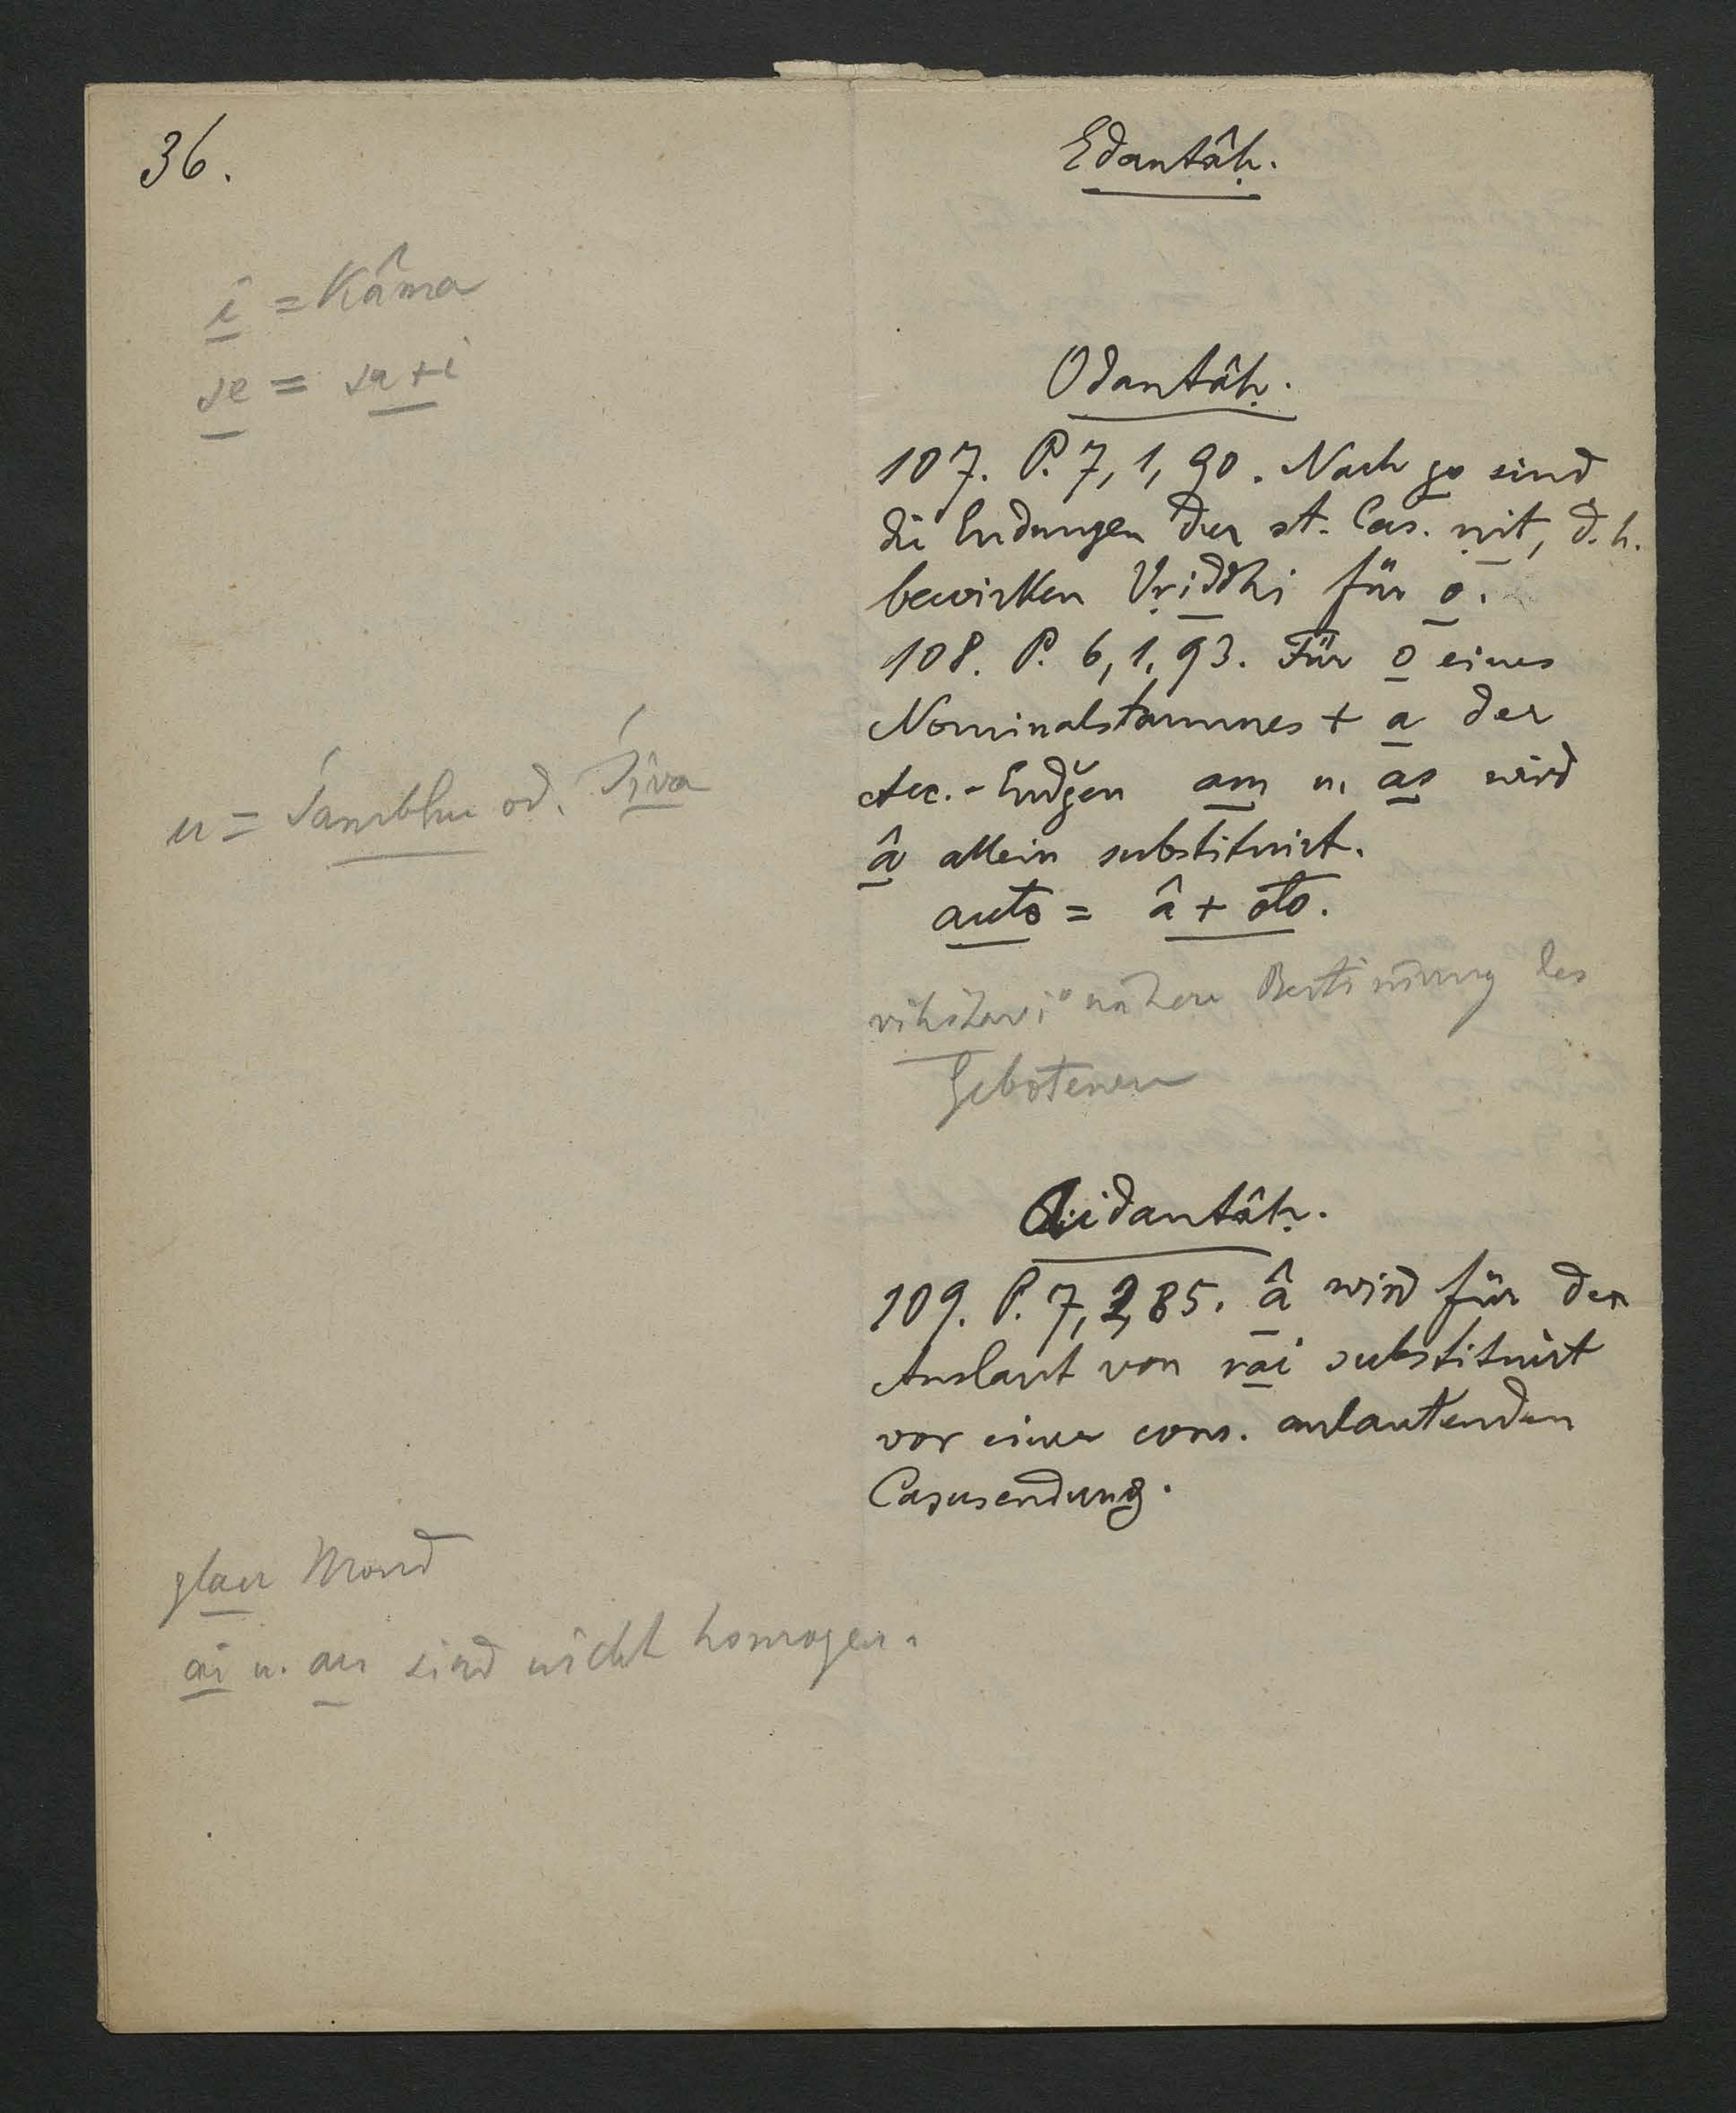 36.
Edantâḥ.
i = Kâma
se = sa + i
Odantâḥ.
107. P. 7, 1, 90. Nach go sind
die Endungen der st. Cas. ṇit, d. h.
bewirken Vṛiddhi für o.
108. P. 6, 1, 93. Für o eines
Nominalstammes + a der
Acc.-Endgen am u. as wird
â allein substituirt.
auto = â + oto.
u = Śambhu od. Śiva
nähere Bestim̄ung des
Gebotenen
Aidantâḥ.
109. P. 7, 2, 85. â wird für den
Auslaut von rai substituirt
vor einer cons. anlautenden
Casusendung.
glau Mond
ai u. au sind nicht homogen.